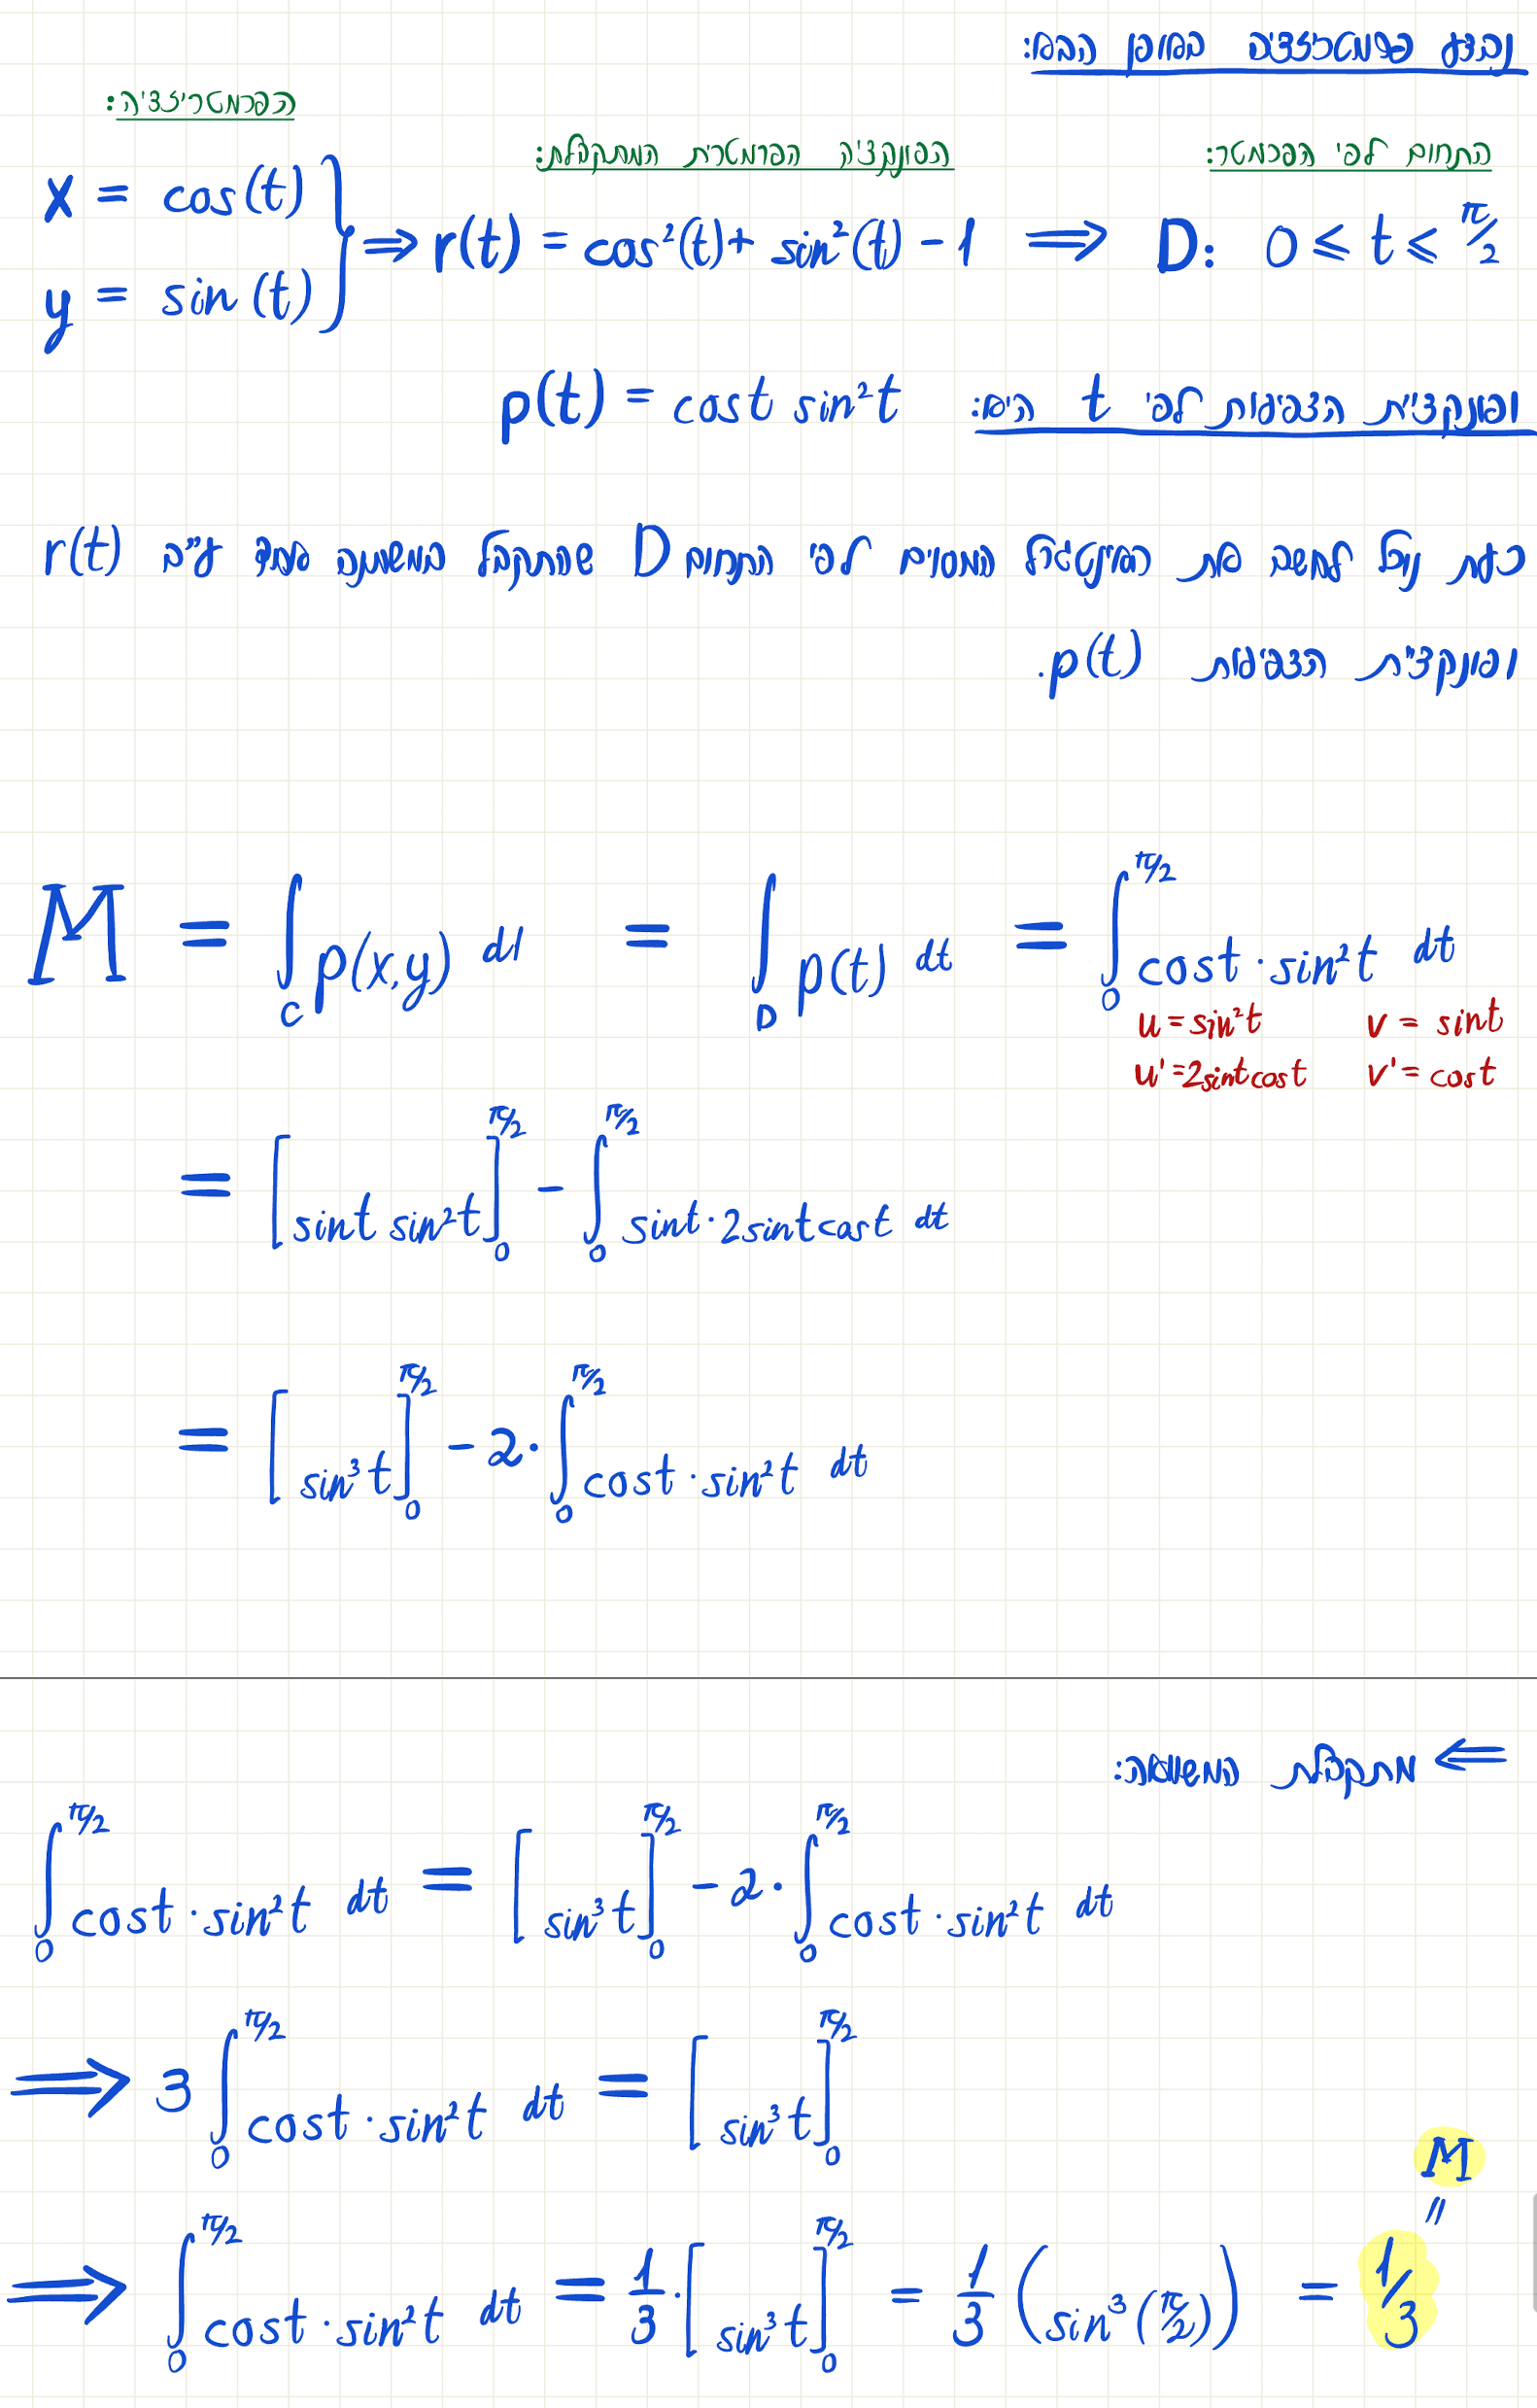 נבצע פרמטריזציה באופן הבא:
הפרמטריזציה:
הפונקציה הפרמטרית המתקבלת:
התחום לפי הפרמטר:
x = cos(t)
y = sin(t)
⇒ r(t) = cos²(t) + sin²(t) - 1 ⟹ D: 0 ≤ t ≤ π/2
ופונקציית הצפיפות לפי t היא: p(t) = cost sin²t
כעת נוכל לחשב את האינטגרל המסוים לפי התחום D שהתקבל במשתנה אחד ע"ב r(t)
ופונקציית הצפיפות p(t).
M = ∫_C p(x,y) dl = ∫_D p(t) dt = ∫_0^{π/2} cost · sin²t dt
u = sin²t v = sint
u' = 2sintcost v' = cost
= [sint sin²t]_0^{π/2} - ∫_0^{π/2} sint · 2sintcost dt
= [sin³t]_0^{π/2} - 2 · ∫_0^{π/2} cost · sin²t dt
⟸ מתקבלת המשוואה:
∫_0^{π/2} cost · sin²t dt = [sin³t]_0^{π/2} - 2 · ∫_0^{π/2} cost · sin²t dt
⟹ 3 ∫_0^{π/2} cost · sin²t dt = [sin³t]_0^{π/2}
M
=
⟹ ∫_0^{π/2} cost · sin²t dt = 1/3 · [sin³t]_0^{π/2} = 1/3 (sin³(π/2)) = 1/3